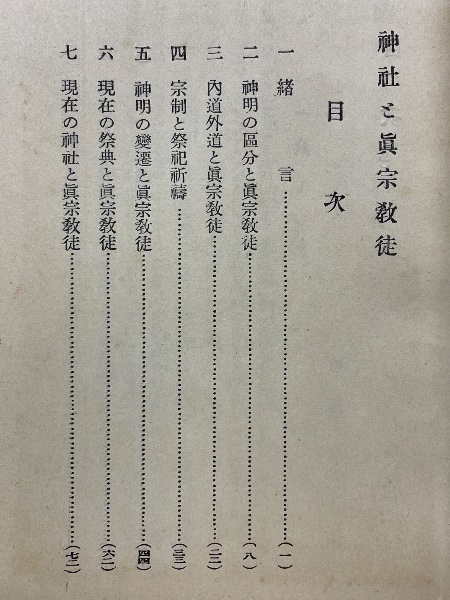 神社と眞宗教徒
目次
一 緒言…………(一)
二 神明の區分と眞宗教徒…………(八)
三 內道外道と眞宗教徒…………(二二)
四 宗制と祭祀祈禱…………(三三)
五 神明の變遷と眞宗教徒…………(四四)
六 現在の祭典と眞宗教徒…………(六二)
七 現在の神社と眞宗教徒…………(七二)